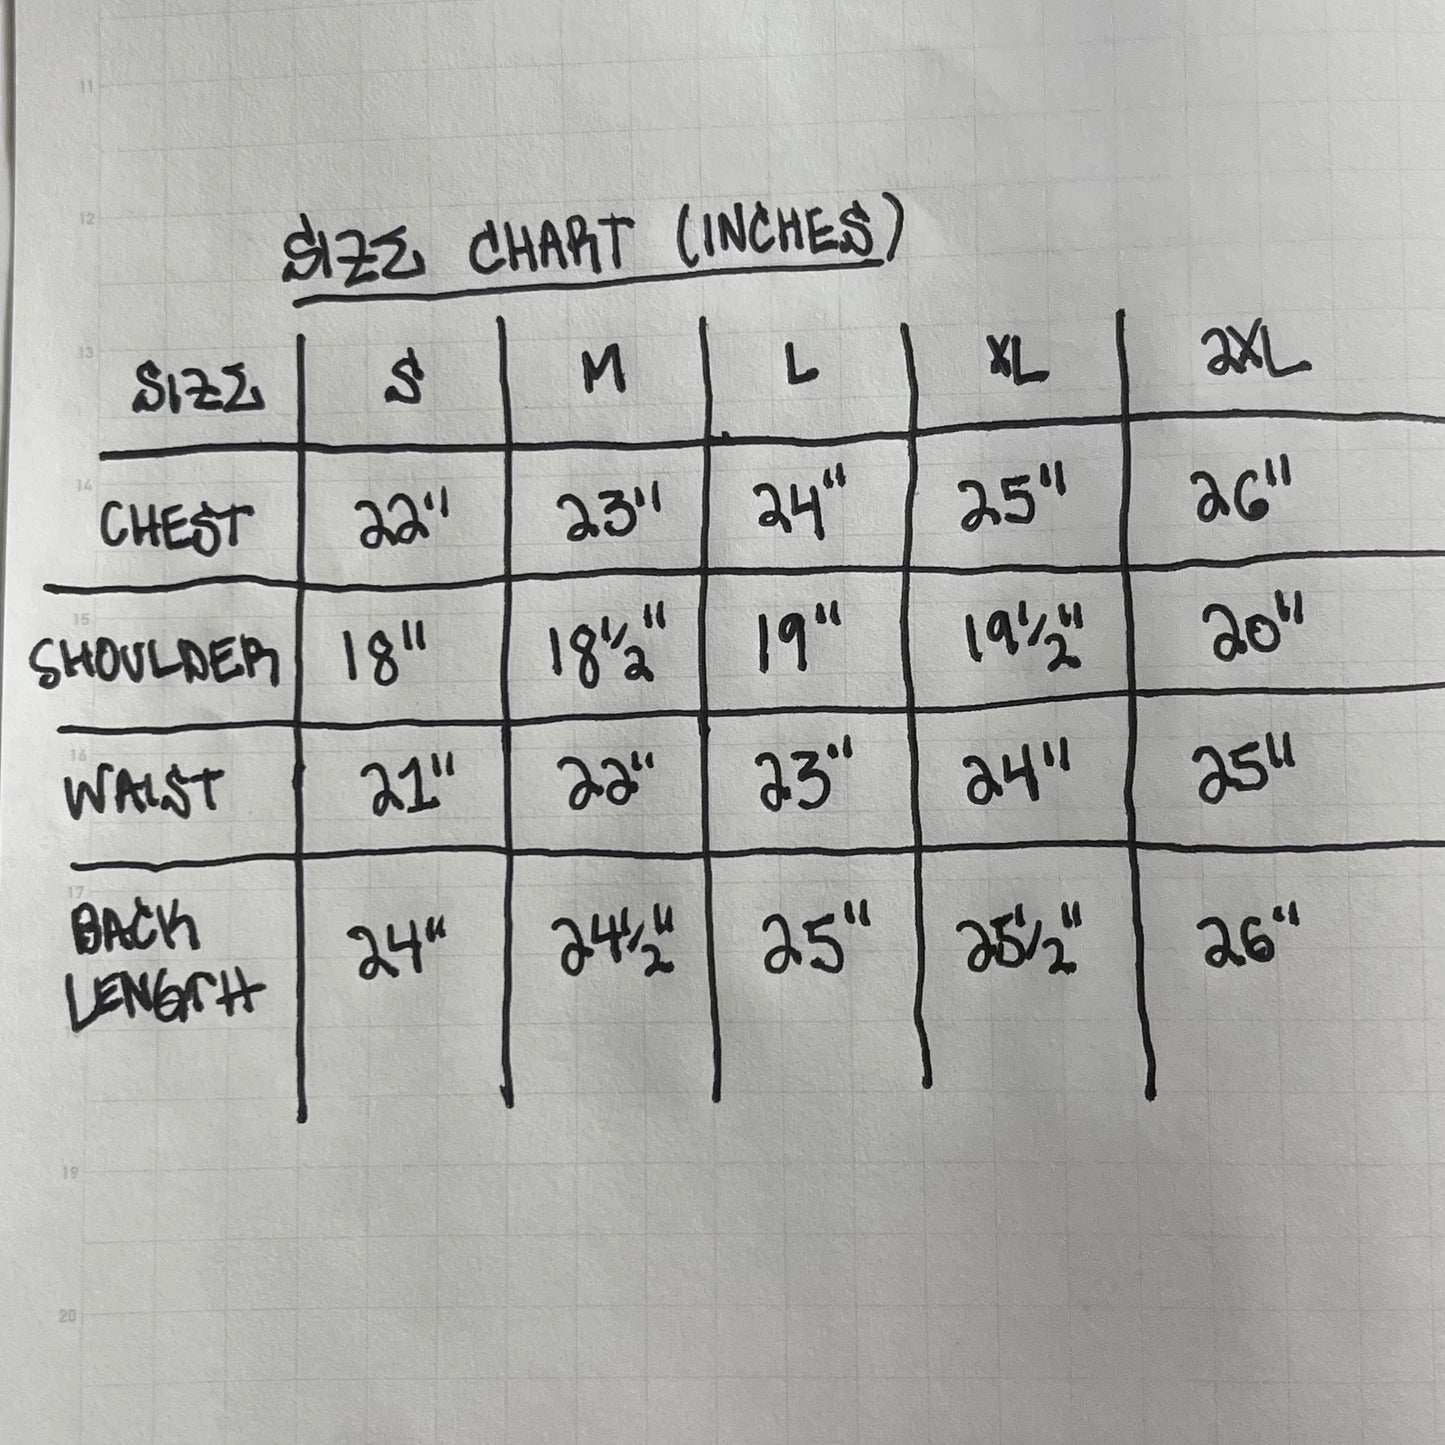 11
12
SIZE CHART (INCHES)
13
SIZE S M L XL 2XL
14
CHEST 22" 23" 24" 25" 26"
15
SHOULDER 18" 18 1/2" 19" 19 1/2" 20"
16
WAIST 21" 22" 23" 24" 25"
17
BACK
LENGTH 24" 24 1/2" 25" 25 1/2" 26"
19
20